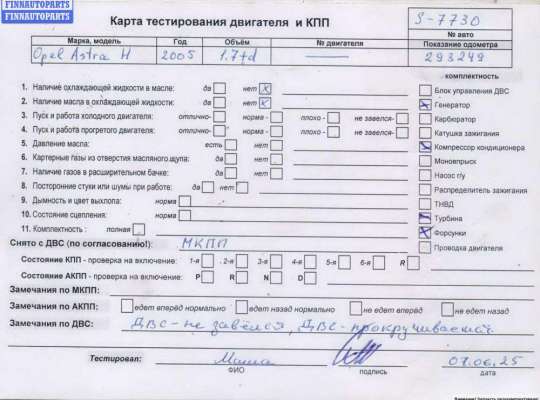 FINNAUTOPARTS
FINNAUTOPARTS
Карта тестирования двигателя и КПП
S-7730
№ авто
Марка, модель Год Объём № двигателя Показание одометра
Opel Astra H 2005 1.7td — 293249
комплектность
1. Наличие охлаждающей жидкости в масле: да нет x
2. Наличие масла в охлаждающей жидкости: да нет x
3. Пуск и работа холодного двигателя: отлично- норма - плохо - не завелся-
4. Пуск и работа прогретого двигателя: отлично- норма - плохо - не завелся-
5. Давление масла: есть нет
6. Картерные газы из отверстия масляного щупа: да нет
7. Наличие газов в расширительном бачке: да нет
8. Посторонние стуки или шумы при работе: да нет
9. Дымность и цвет выхлопа: норма
10. Состояние сцепления: норма
11. Комплектность : полная
Блок управления ДВС
Генератор
Карбюратор
Катушка зажигания
Компрессор кондиционера
Моновпрыск
Насос г/у
Распределитель зажигания
ТНВД
Турбина
Форсунки
Проводка двигателя
Снято с ДВС (по согласованию!): МКПП
Состояние КПП - проверка на включение: 1-я 2-я 3-я 4-я 5-я 6-я R
Состояние АКПП - проверка на включение: P R N D
Замечания по МКПП:
Замечания по АКПП: едет вперёд нормально едет назад нормально не едет вперёд не едет назад
Замечания по ДВС: ДВС-не завёлся, ДВС-прокручивается.
Тестировал: Миша 07.06.25
ФИО подпись дата